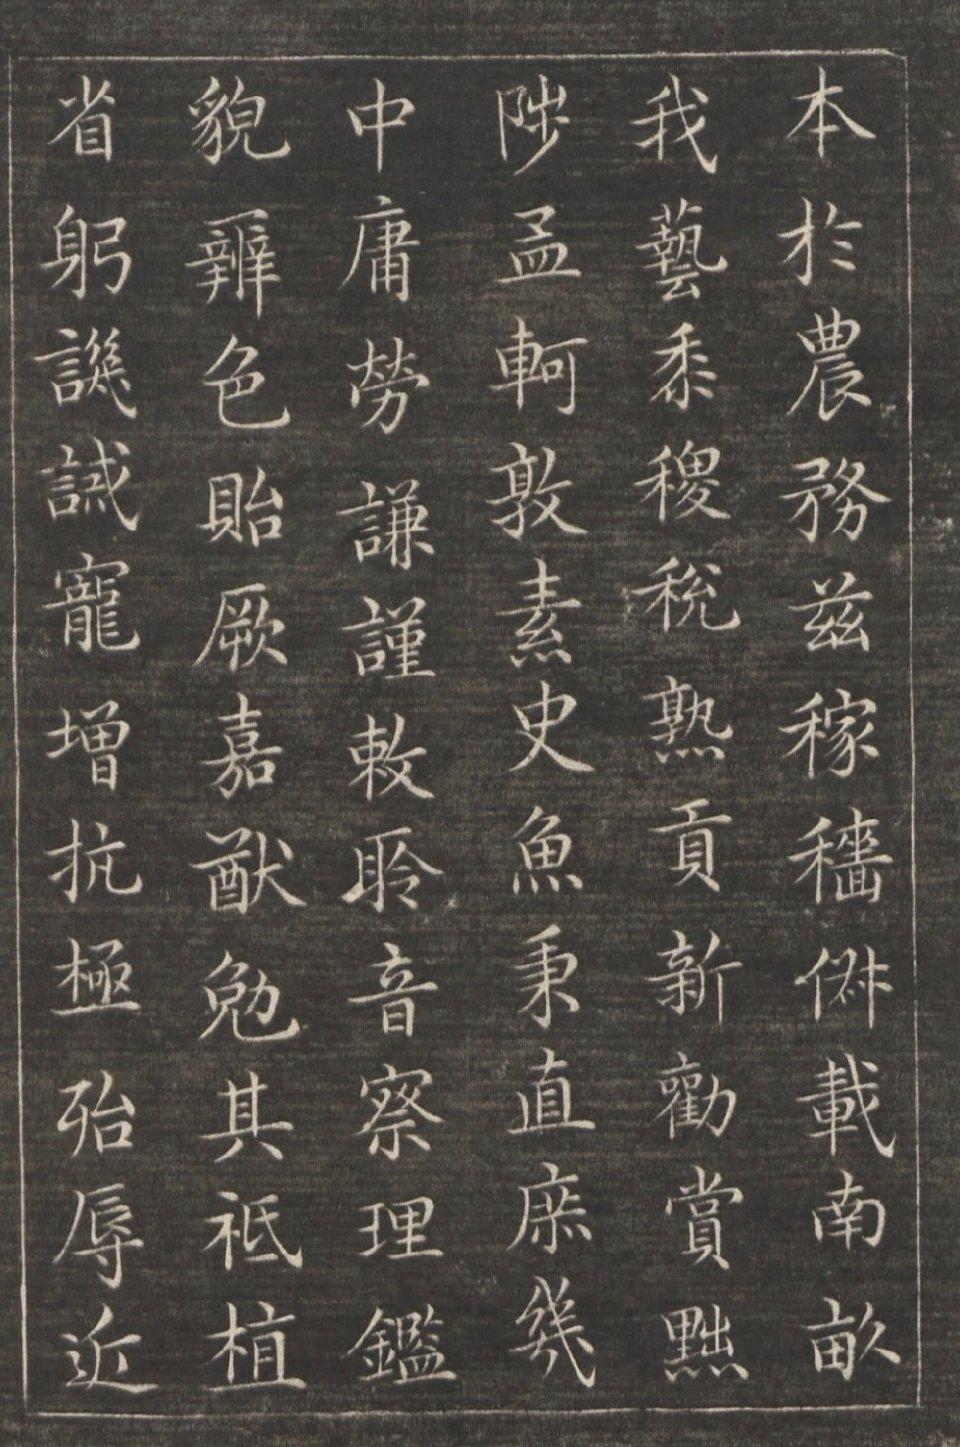 本於農務茲稼穡俶載南畝
我藝黍稷稅熟貢新勸賞黜
陟孟軻敦素史魚秉直庶幾
中庸勞謙謹敕聆音察理鑑
貌辨色貽厥嘉猷勉其祗植
省躬譏誡寵增抗極殆辱近